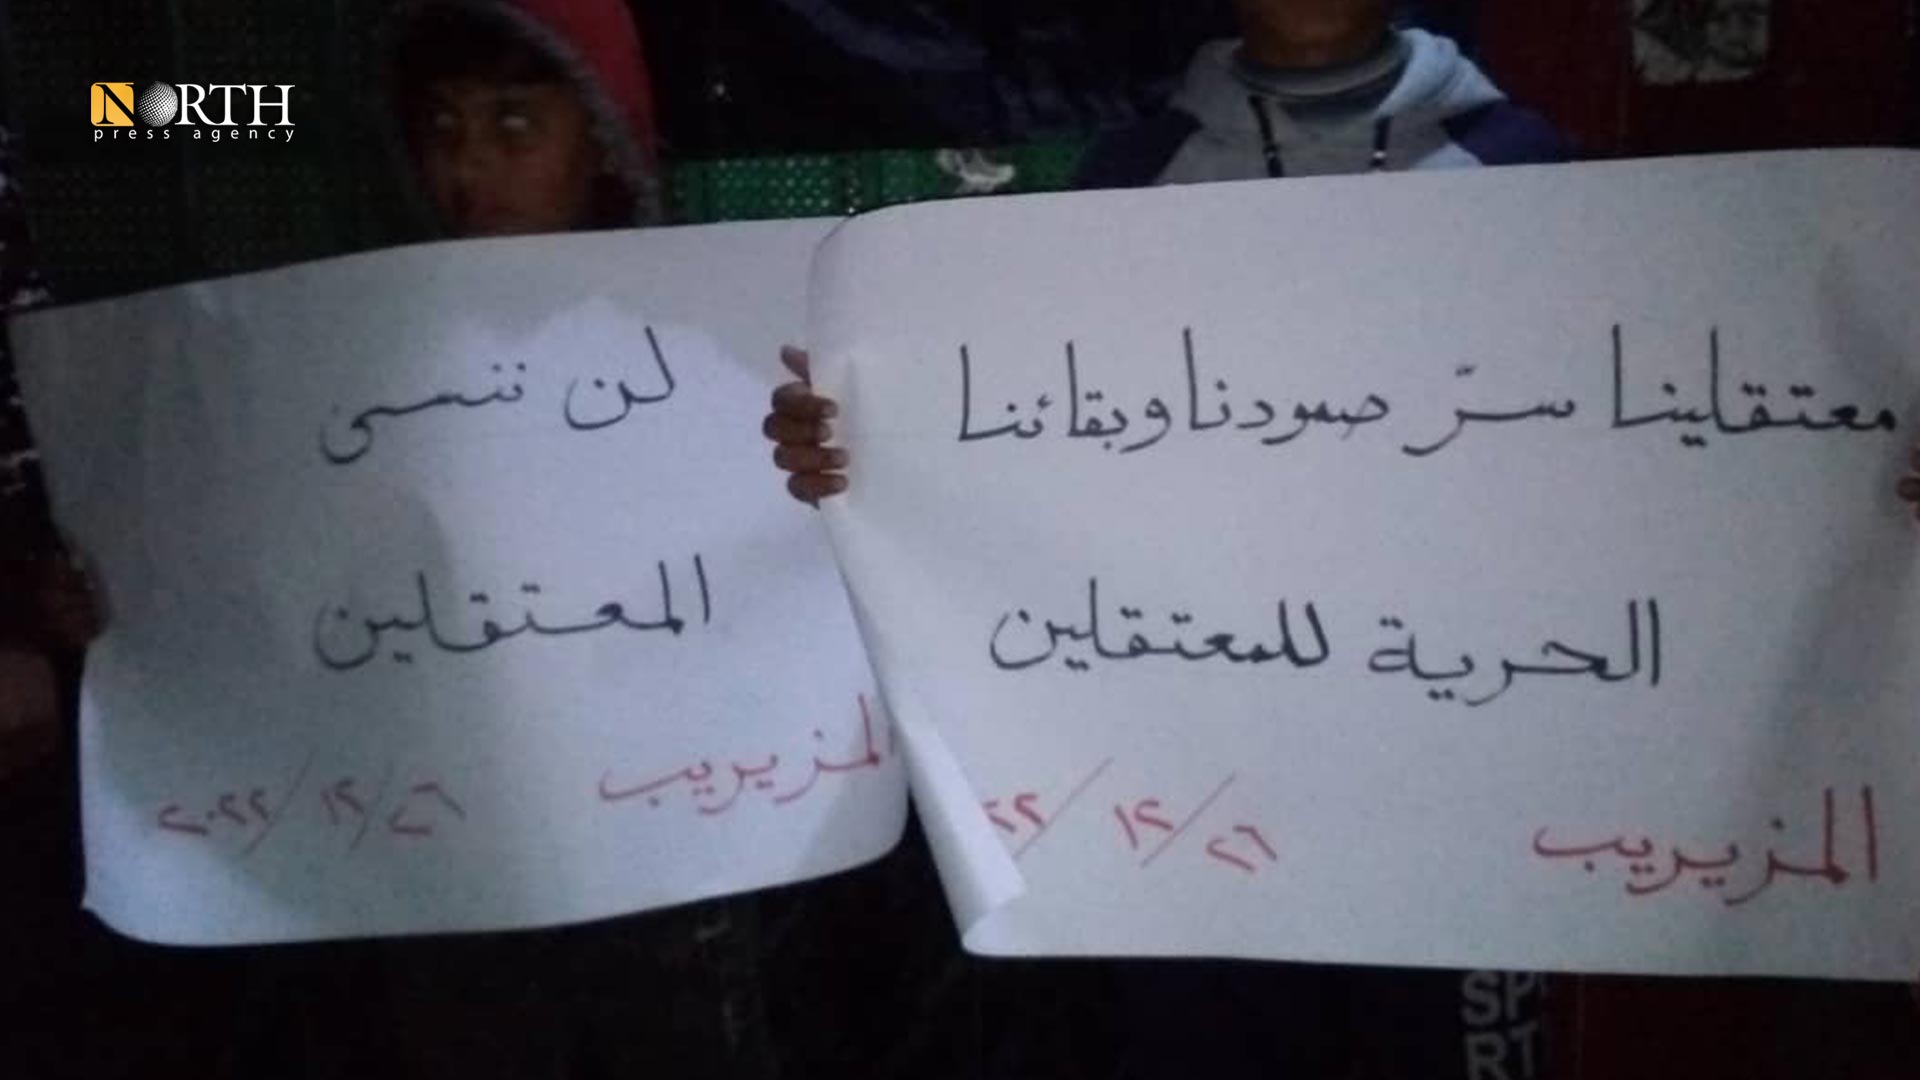 NORTH
press agency
معتقلينا سرّ صمودنا وبقائنا
الحرية للمعتقلين
المزيريب ٢٦/١٢/٢٢
لن ننسى
المعتقلين
المزيريب ٢٦/١٢/٢٠٢٢
SP
RT